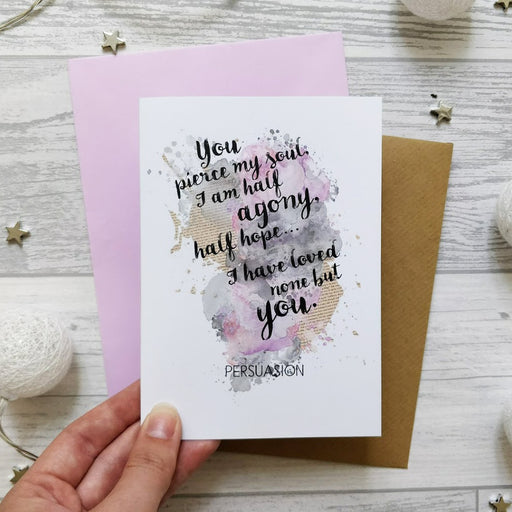 You
pierce my soul.
I am half
agony,
half hope...
I have loved
none but
you.
PERSUASION